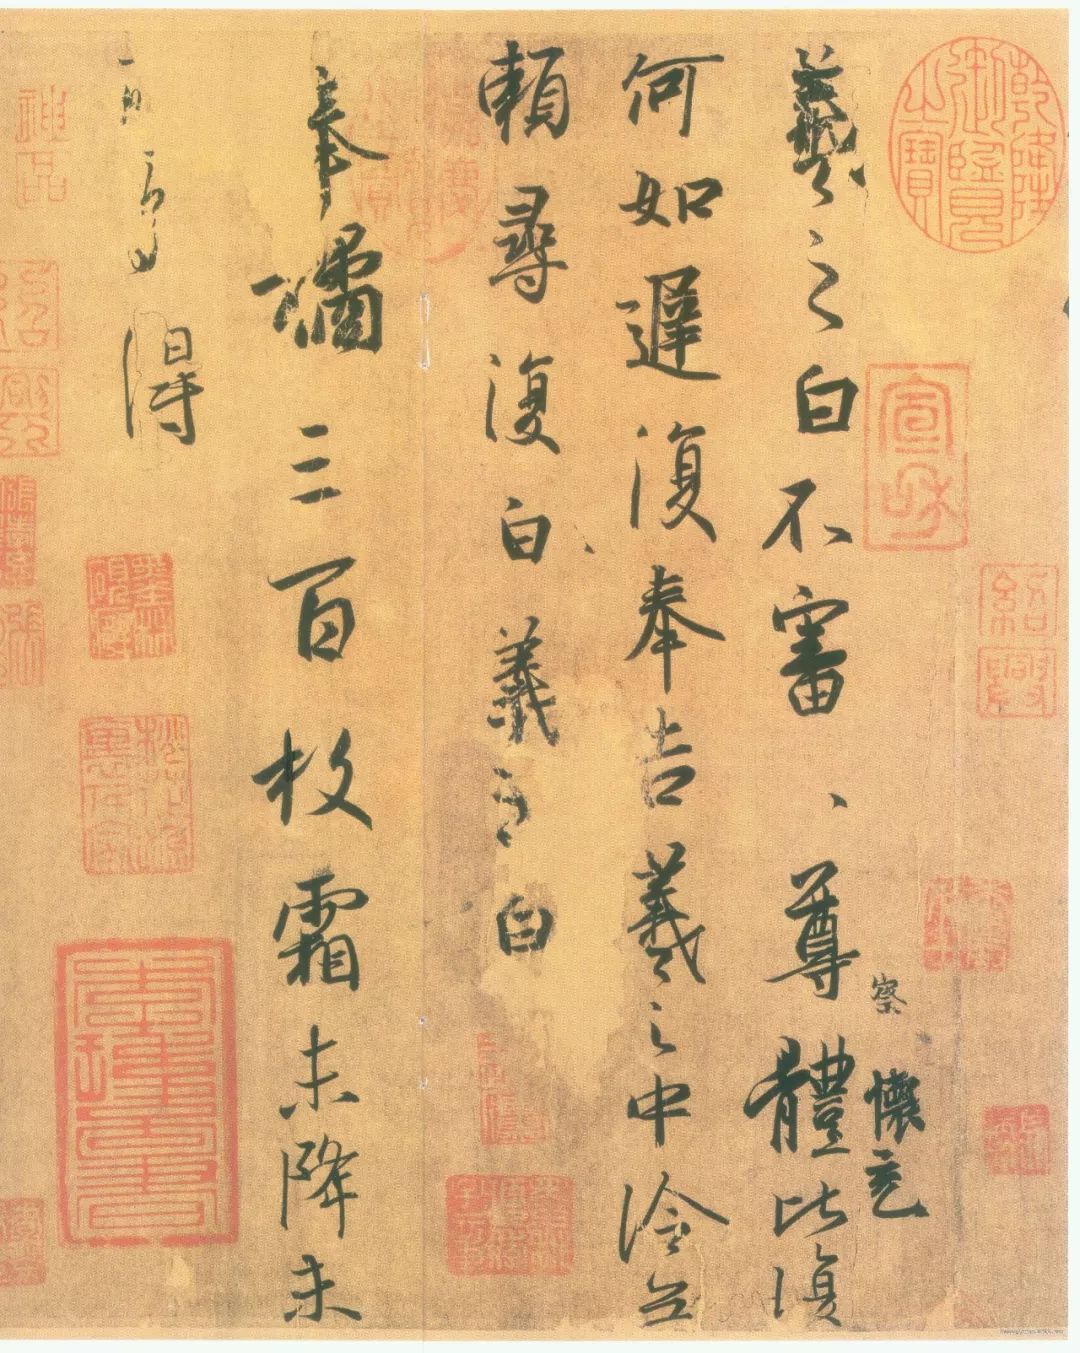 乾隆御覽之寶
宣和
紹興
察 懷充
羲之白不審、尊體比復
何如遲復奉告羲之中冷無
賴尋復白羲之白
奉橘三百枚霜未降未
可多得
神品
紹興